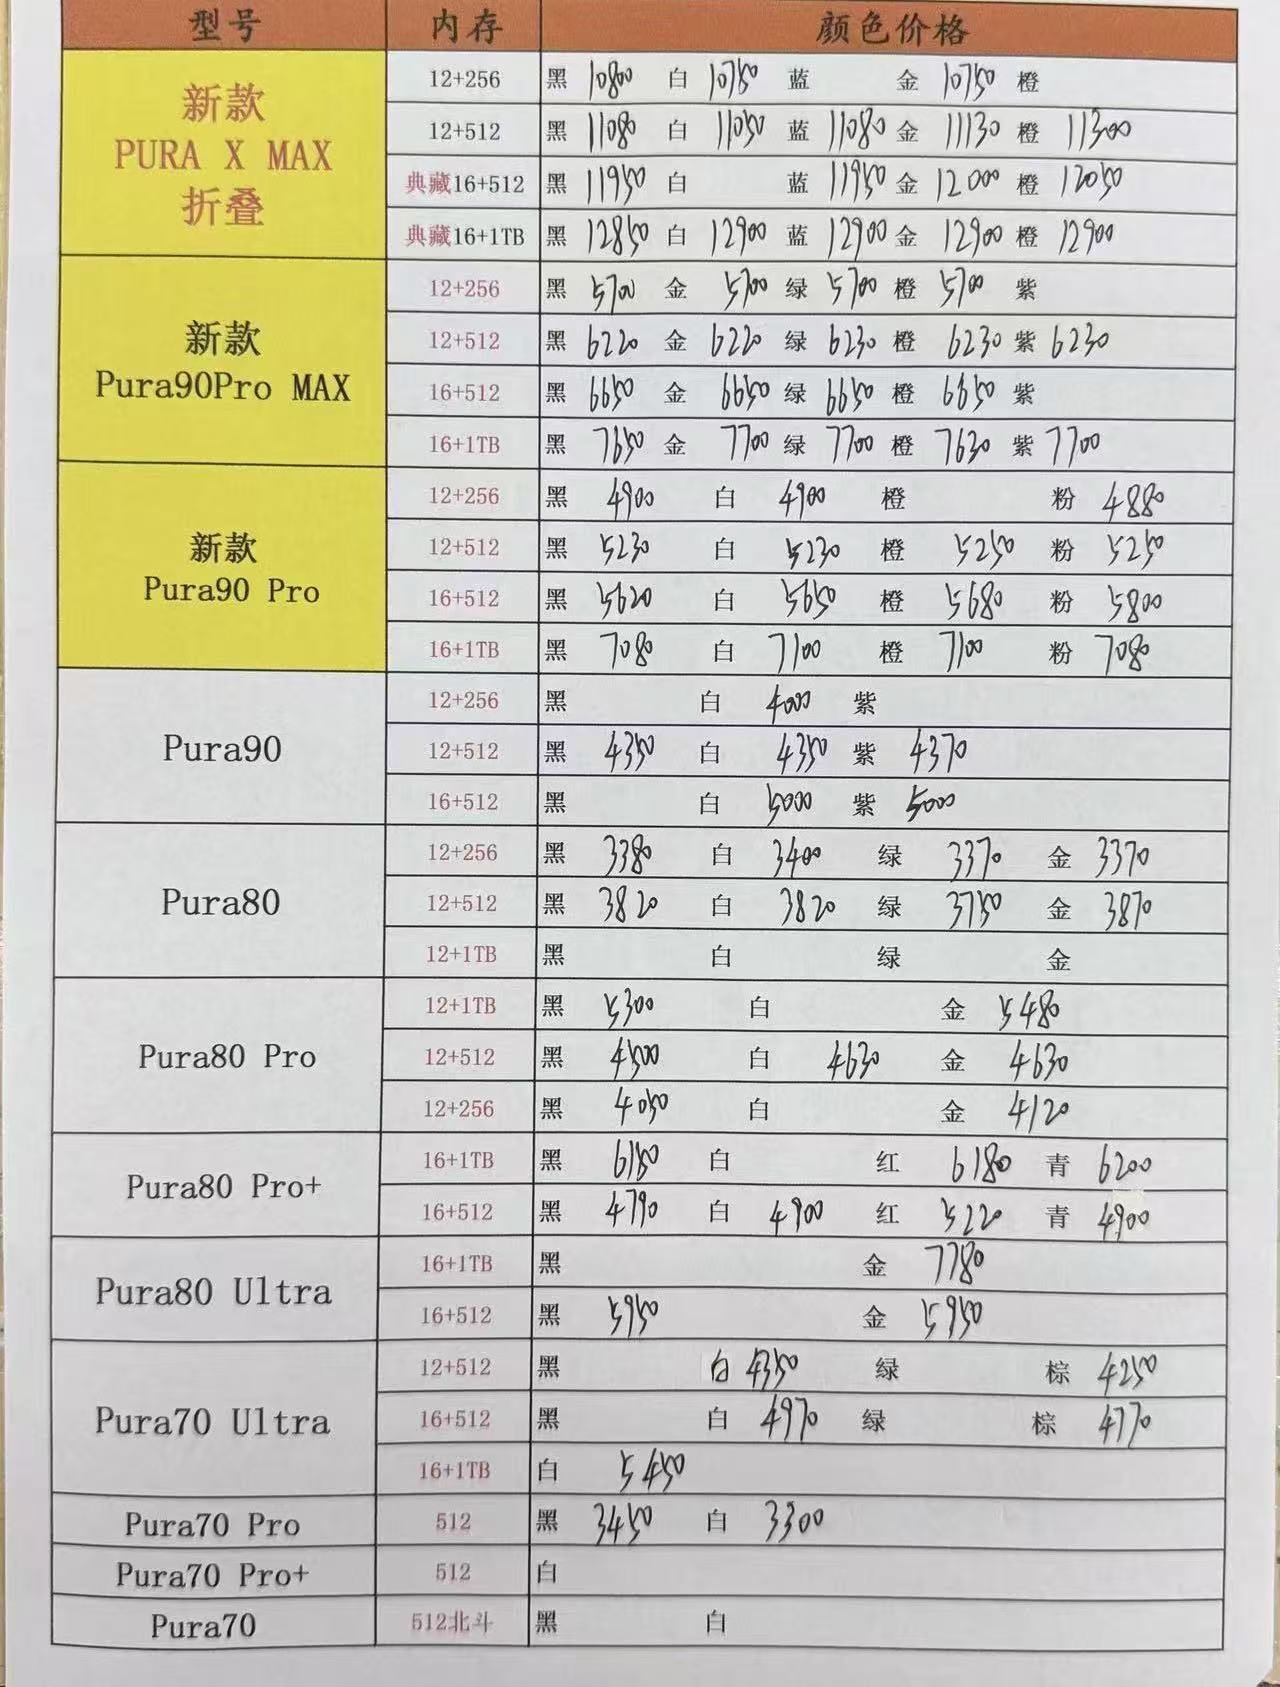 型号 内存 颜色价格
新款 PURA X MAX 折叠
12+256 黑 10800 白 10750 蓝 金 10750 橙
12+512 黑 11080 白 11050 蓝 11080 金 11130 橙 11300
典藏16+512 黑 11950 白 蓝 11950 金 12000 橙 12050
典藏16+1TB 黑 12850 白 12900 蓝 12900 金 12900 橙 12900
新款 Pura90Pro MAX
12+256 黑 5700 金 5700 绿 5700 橙 5700 紫
12+512 黑 6220 金 6220 绿 6230 橙 6230 紫 6230
16+512 黑 6650 金 6650 绿 6650 橙 6650 紫
16+1TB 黑 7650 金 7700 绿 7700 橙 7630 紫 7700
新款 Pura90 Pro
12+256 黑 4900 白 4900 橙 粉 4880
12+512 黑 5230 白 5230 橙 5250 粉 5250
16+512 黑 5620 白 5650 橙 5680 粉 5800
16+1TB 黑 7080 白 7100 橙 7100 粉 7080
Pura90
12+256 黑 白 4000 紫
12+512 黑 4350 白 4350 紫 4370
16+512 黑 白 5000 紫 5000
Pura80
12+256 黑 3380 白 3400 绿 3370 金 3370
12+512 黑 3820 白 3820 绿 3750 金 3870
12+1TB 黑 白 绿 金
Pura80 Pro
12+1TB 黑 5300 白 金 5480
12+512 黑 4500 白 4630 金 4630
12+256 黑 4050 白 金 4120
Pura80 Pro+
16+1TB 黑 6150 白 红 6180 青 6200
16+512 黑 4790 白 4900 红 5220 青 4900
Pura80 Ultra
16+1TB 黑 金 7780
16+512 黑 5950 金 5950
Pura70 Ultra
12+512 黑 白 4350 绿 棕 4250
16+512 黑 白 4970 绿 棕 4770
16+1TB 白 5450
Pura70 Pro 512 黑 3450 白 3300
Pura70 Pro+ 512 白
Pura70 512北斗 黑 白